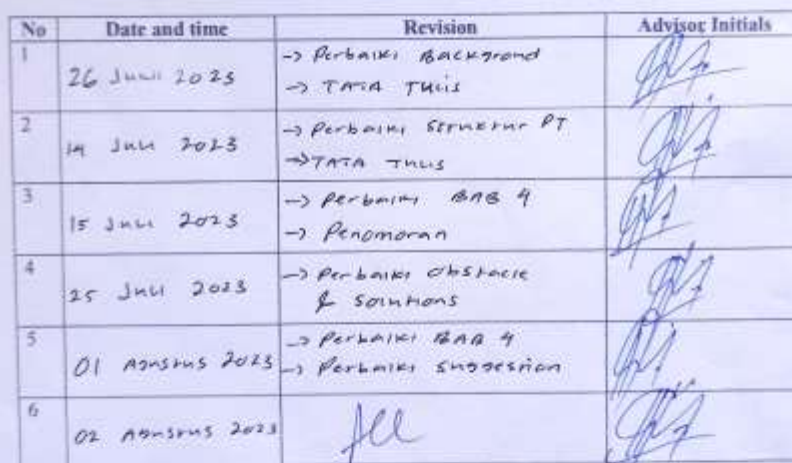 No Date and time Revision Advisor Initials
1 26 Juli 2023 -> Perbaiki Backgrond
-> TATA TULIS
2 14 Juli 2023 -> Perbaiki Struktur PT
-> TATA TULIS
3 15 Juli 2023 -> Perbaiki BAB 4
-> Penomoran
4 25 Juli 2023 -> Perbaiki Obstacle
& Solutions
5 01 Agustus 2023 -> Perbaiki BAB 4
-> Perbaiki Suggestion
6 02 Agustus 2023